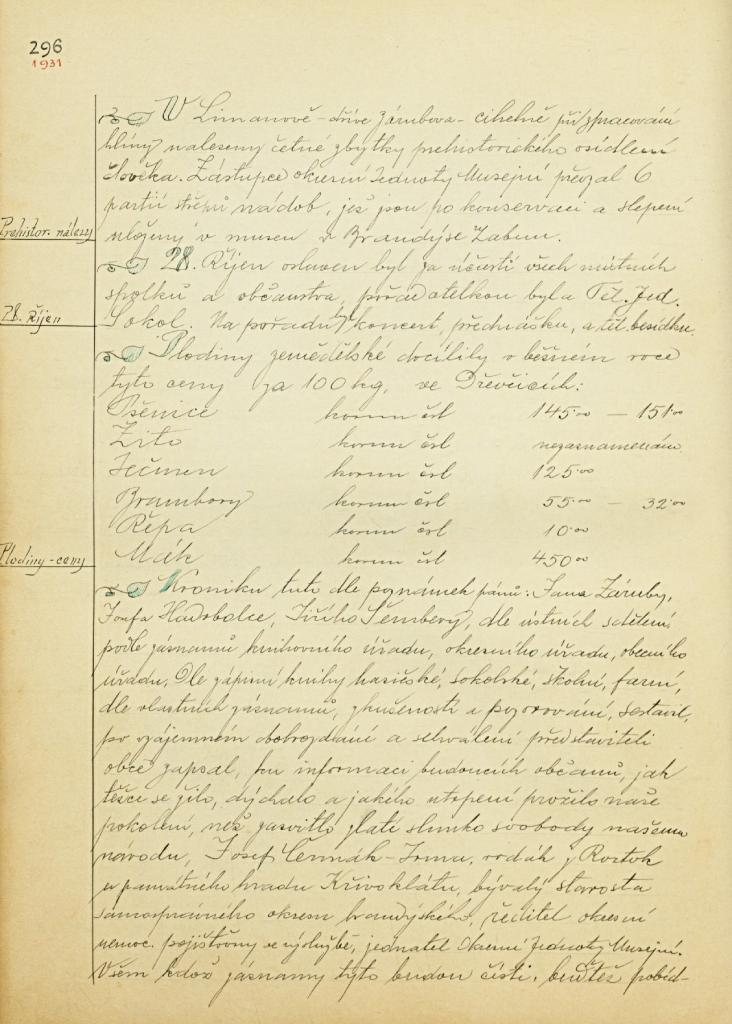 296
1931
V Limanově - dříve Zárubova - cihelně při zpracování
hlíny nalezeny četné zbytky prehistorického osídlení
člověka. Zástupce okresní Jednoty Musejní převzal 6
partií střepů nádob, jež jsou po konservaci a slepení
Prehistor. nálezy
uloženy v museu v Brandýse Labem.
28. Říjen oslaven byl za účasti všech místních
spolků a občanstva, pořadatelkou byla Těl. Jed.
28. Říjen
Sokol. Na pořadu koncert, přednášku, a těl. besídku.
Plodiny zemědělské docílily v běžném roce
tyto ceny za 100 kg, ve Dřevčicích:
Pšenice korun čsl 145·00 — 151·00
Žito korun čsl nezaznamenáno
Ječmen korun čsl 125·00
Brambory korun čsl 55·00 — 32·00
Řepa korun čsl 10·00
Plodiny - ceny
Mák korun čsl 450·00
Kroniku tuto dle poznámek pánů: Jana Záruby,
Josefa Hadrbolce, Jiřího Šembery, dle ústních sdělení
podle záznamů knihovního úřadu, okresního úřadu, obecního
úřadu, Dle zápisní knihy hasičské, sokolské, školní, farní,
dle vlastních záznamů, zkušeností a pozorování, sestavil,
po vzájemném dobrozdání a schválení představiteli
obce zapsal, ku informaci budoucích občanů, jak
těžce se žilo, dýchalo a jakého utrpení prožilo naše
pokolení, než zasvitlo zlaté slunko svobody našemu
národu, Josef Čermák - Irma, rodák z Roztok
u památného hradu Křivoklátu, bývalý starosta
samosprávného okresu brandýského, ředitel okresní
nemoc. pojišťovny ve výslužbě, jednatel Okresní Jednoty Musejní.
Všem kdož záznamy tyto budou čísti, buďtež pobíd-